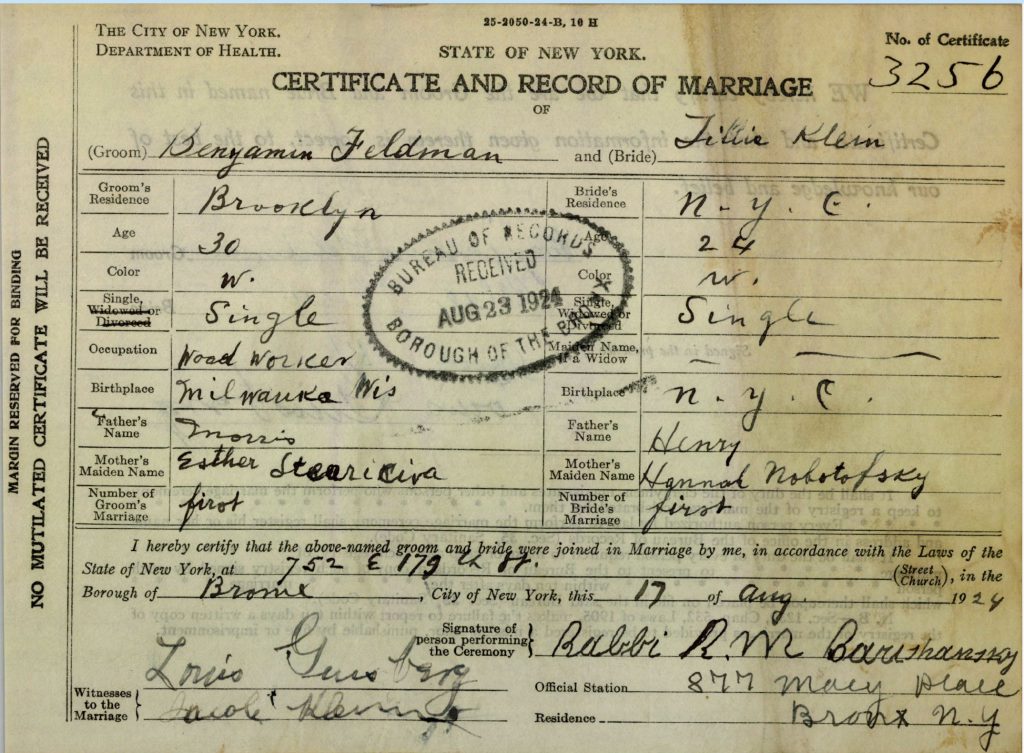 25-2050-24-B, 10 H
THE CITY OF NEW YORK.
DEPARTMENT OF HEALTH.
STATE OF NEW YORK.
No. of Certificate
3256
CERTIFICATE AND RECORD OF MARRIAGE
OF
(Groom) Benyamin Feldman and (Bride) Tillie Klein
Groom's Residence Brooklyn Bride's Residence N. Y. C.
Age 30 Age 24
Color W. Color W.
Single, Widowed or Divorced Single Single, Widowed or Divorced Single
Occupation Wood Worker Maiden Name, if a Widow
Birthplace Milwauke Wis Birthplace N. Y. C.
Father's Name Morris Father's Name Henry
Mother's Maiden Name Esther Mother's Maiden Name Hannah Nobotofsky
Number of Groom's Marriage first Number of Bride's Marriage first
BUREAU OF RECORDS
RECEIVED
AUG 23 1924
BOROUGH OF THE BRONX
I hereby certify that the above-named groom and bride were joined in Marriage by me, in accordance with the Laws of the
State of New York, at 752 E 179 th St. (Street Church), in the
Borough of , City of New York, this 17 of Aug. 1924
Signature of person performing the Ceremony Rabbi R. M
Louis
Witnesses to the Marriage Jacob Klein
Official Station 877 Macy Place
Residence Bronx N. Y
MARGIN RESERVED FOR BINDING
NO MUTILATED CERTIFICATE WILL BE RECEIVED